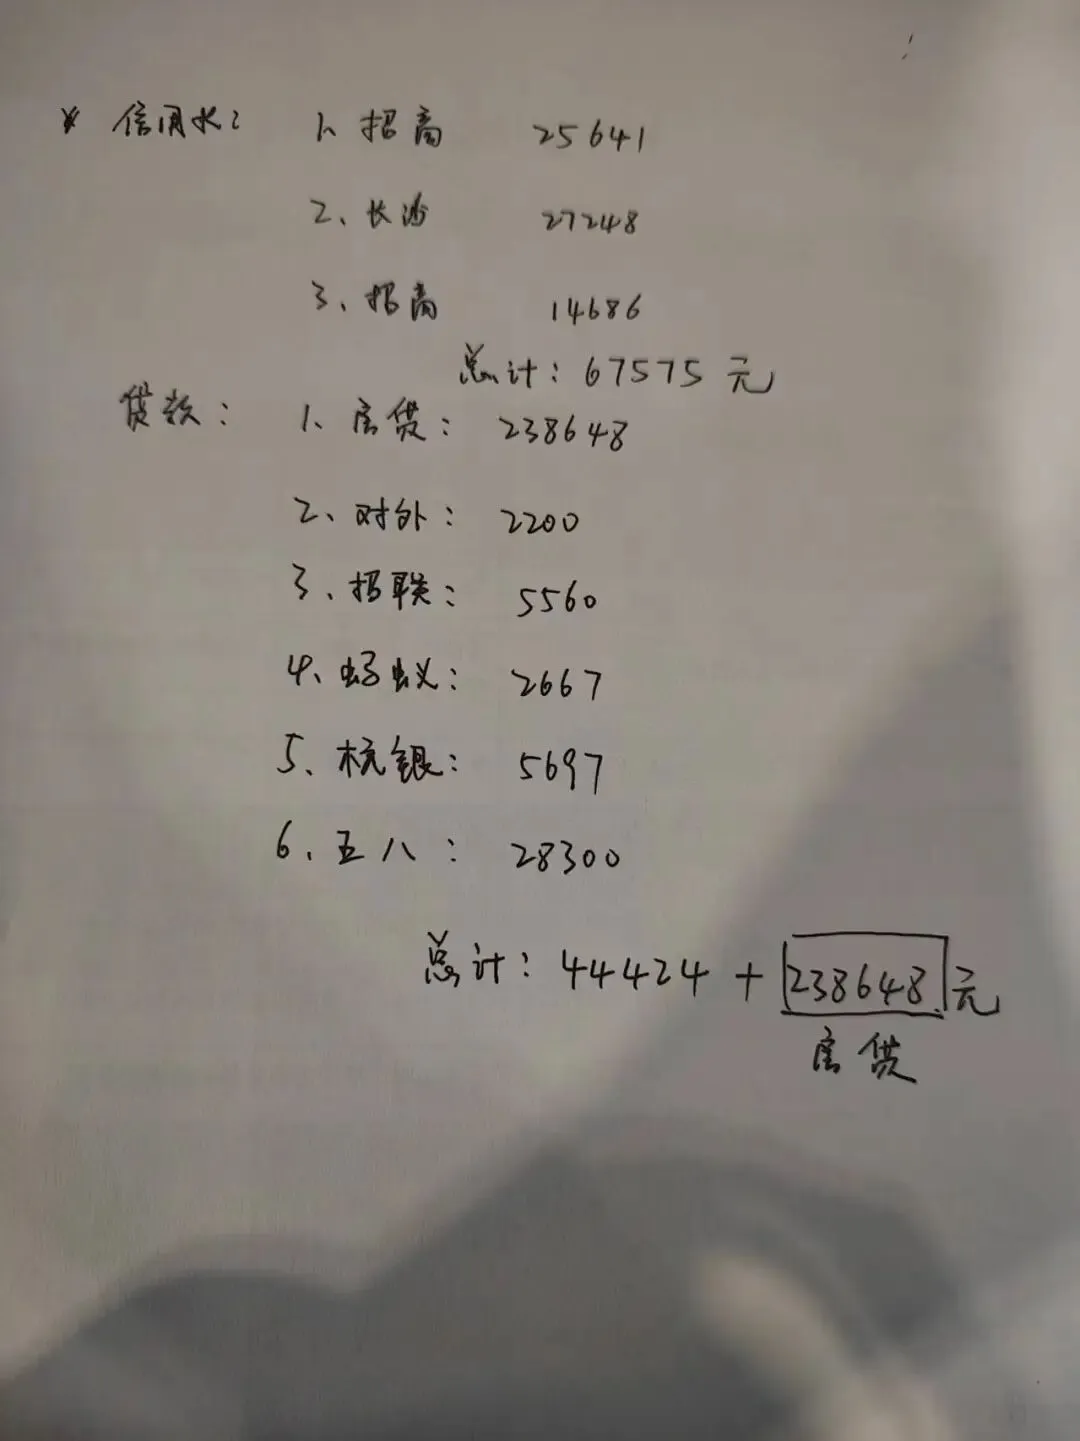 * 信用卡: 1、招商 25641
2、长沙 27248
3、招商 14686
总计: 67575 元
贷款: 1、房贷: 238648
2、对外: 2200
3、招联: 5560
4、蚂蚁: 2667
5、杭银: 5697
6、五八: 28300
总计: 44424 + 238648 元
房贷